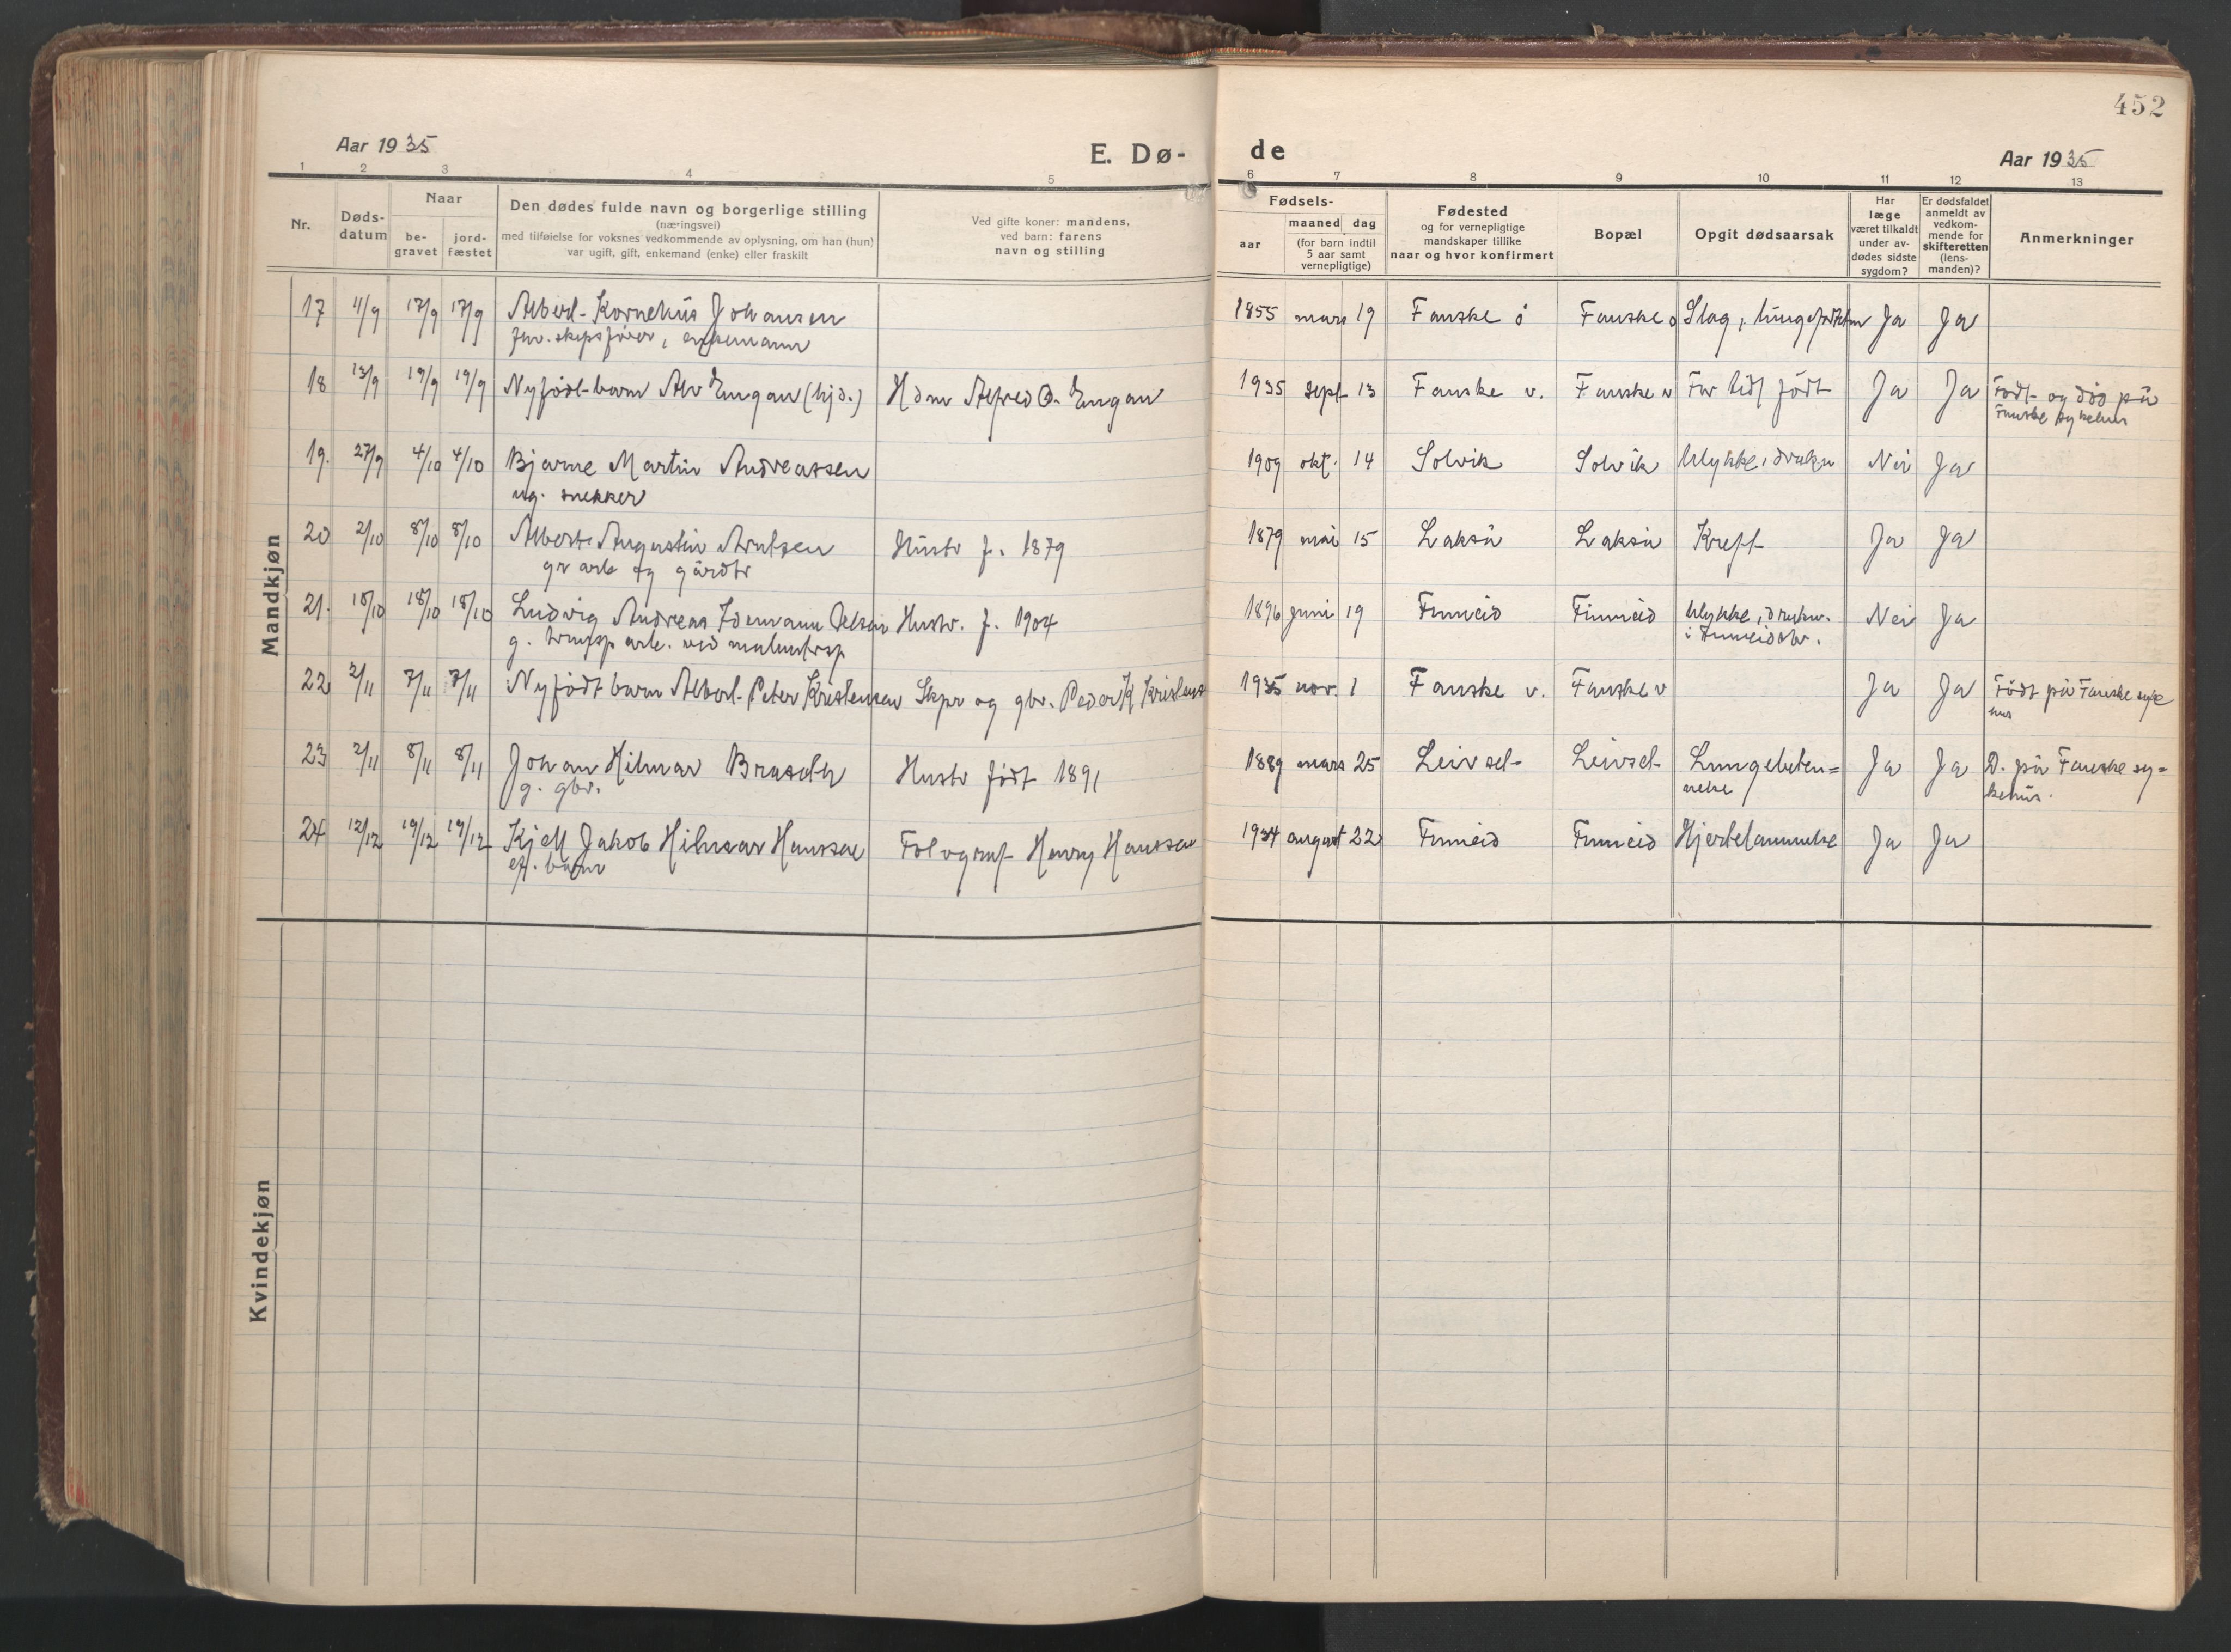 452
Aar 1935 E. Dø- de Aar 1935
1 2 3 4 5 6 7 8 9 10 11 12 13
Nr.
Døds-
datum
Naar
be-
gravet
jord-
fæstet
Den dødes fulde navn og borgerlige stilling
(næringsvei)
med tilføielse for voksnes vedkommende av oplysning, om han (hun)
var ugift, gift, enkemand (enke) eller fraskilt
Ved gifte koner: mandens,
ved barn: farens
navn og stilling
Fødsels-
aar
maaned dag
(for barn indtil
5 aar samt
vernepligtige)
Fødested
og for vernepligtige
mandskaper tillike
naar og hvor konfirmert
Bopæl
Opgit dødsaarsak
Har
læge
været tilkaldt
under av-
dødes sidste
sygdom?
Er dødsfaldet
anmeldt av
vedkom-
mende for
skifteretten
(lens-
manden)?
Anmerkninger
Mandkjøn
17 11/9 17/9 17/9 Albert Kornelius Johansen 1855 mars 19 Fauske ø Fauske ø Slag, Ja Ja
fhv. skipsfører, enkemann
18 13/9 19/9 19/9 Nyfødt barn Alv Engan (hjd.) Hdm Alfred O. Engan 1935 sept 13 Fauske v. Fauske v For tidl født Ja Ja Født og død på
Fauske sykehus
19. 27/9 4/10 4/10 Bjarne Martin Andreassen 1909 okt. 14 Solvik Solvik Ulykke, drukn Nei Ja
ug. snekker
20 2/10 8/10 8/10 Albert Augustin Arntsen Hustr f. 1879 1879 mai 15 Lakså Lakså Kreft Ja Ja
gr arb og gårdbr
21. 15/10 18/10 18/10 Ludvig Andreas Hustr. f. 1904 1896 juni 19 Finneid Finneid Ulykke, drukn. Nei Ja
g. transp arb. ved malmtrsp i Finneidstr.
22 2/11 7/11 7/11 Nyfødt barn Albert Peter Kristensen Skpr og gbr. Peder K Kristensen 1935 nov. 1 Fauske v. Fauske v Ja Ja Født på Fauske syke
hus
23 2/11 8/11 8/11 Johan Hilmar Brasch Hustr født 1891 1889 mars 25 Leivset Leivset Lungebeten= Ja Ja D. på Fauske sy=
g. gbr. nelse kehus.
24 12/12 19/12 19/12 Kjell Jakob Hilmar Hansen Fotograf Henry Hansen 1934 august 22 Finneid Finneid Hjertelammelse Ja Ja
eft. barn
Kvindekjøn